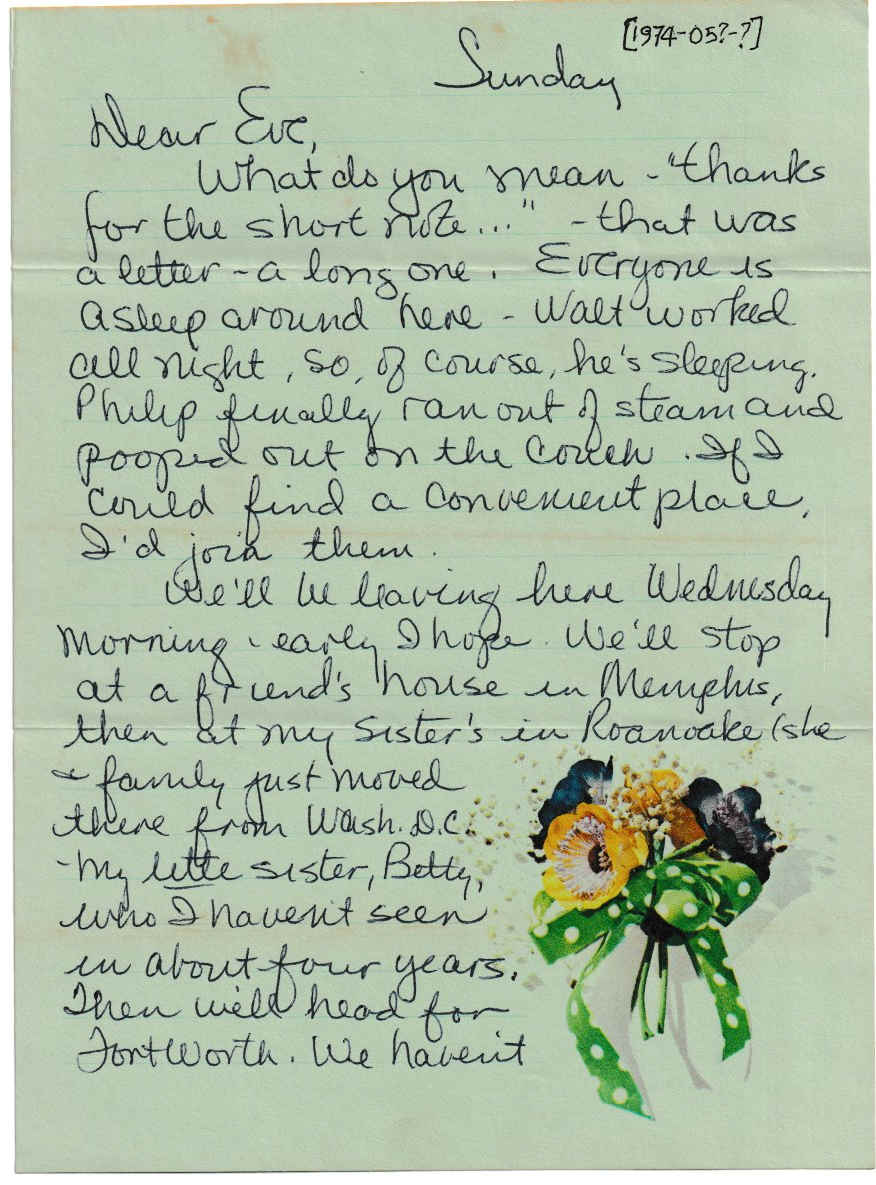 [1974-05?-?]
Sunday
Dear Eve,
What do you mean - "thanks
for the short note..." - that was
a letter - a long one. Everyone is
asleep around here - Walt worked
all night, so, of course, he's sleeping.
Philip finally ran out of steam and
pooped out on the couch. If I
could find a convenient place,
I'd join them.
We'll be leaving here Wednesday
morning - early I hope. We'll stop
at a friend's house in Memphis,
then at my sister's in Roanoake (she
& family just moved
there from Wash. D.C.
- my little sister, Betty,
who I haven't seen
in about four years.
Then we'll head for
Fort Worth. We haven't